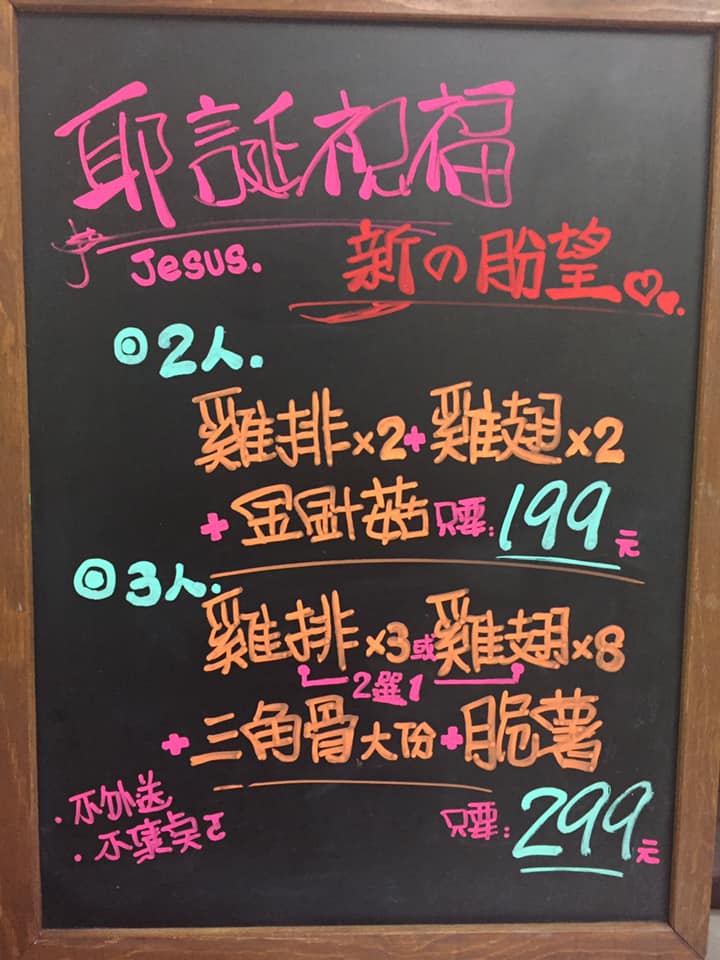 耶誕祝福
Jesus.
新の盼望
◎2人.
雞排x2+雞翅x2
+金針菇只要:199元
◎3人.
雞排x3或雞翅x8
2選1
+三角骨大份+脆薯
只要:299元
·不外送
·不集点